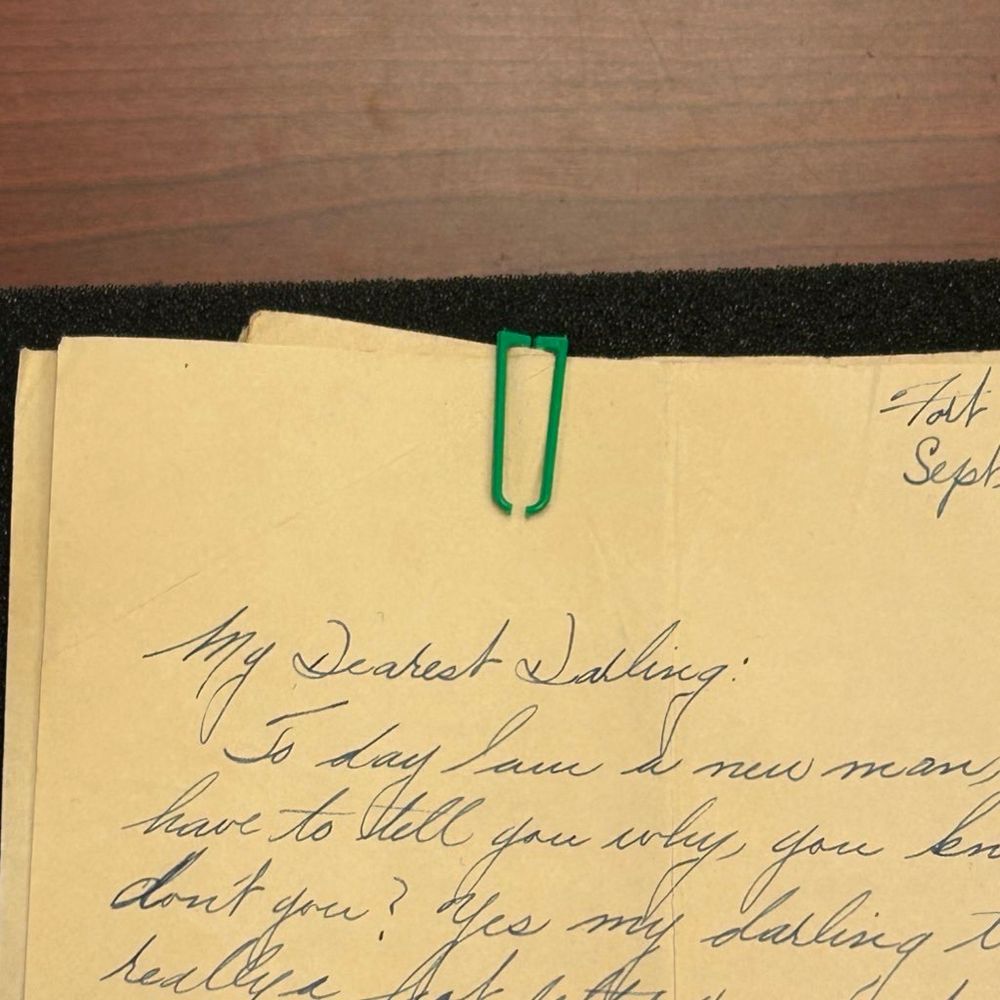 Fort
Sept.
My Dearest Darling:
To day I am a new man,
have to tell you why, you kn
don't you? Yes my darling t
really a